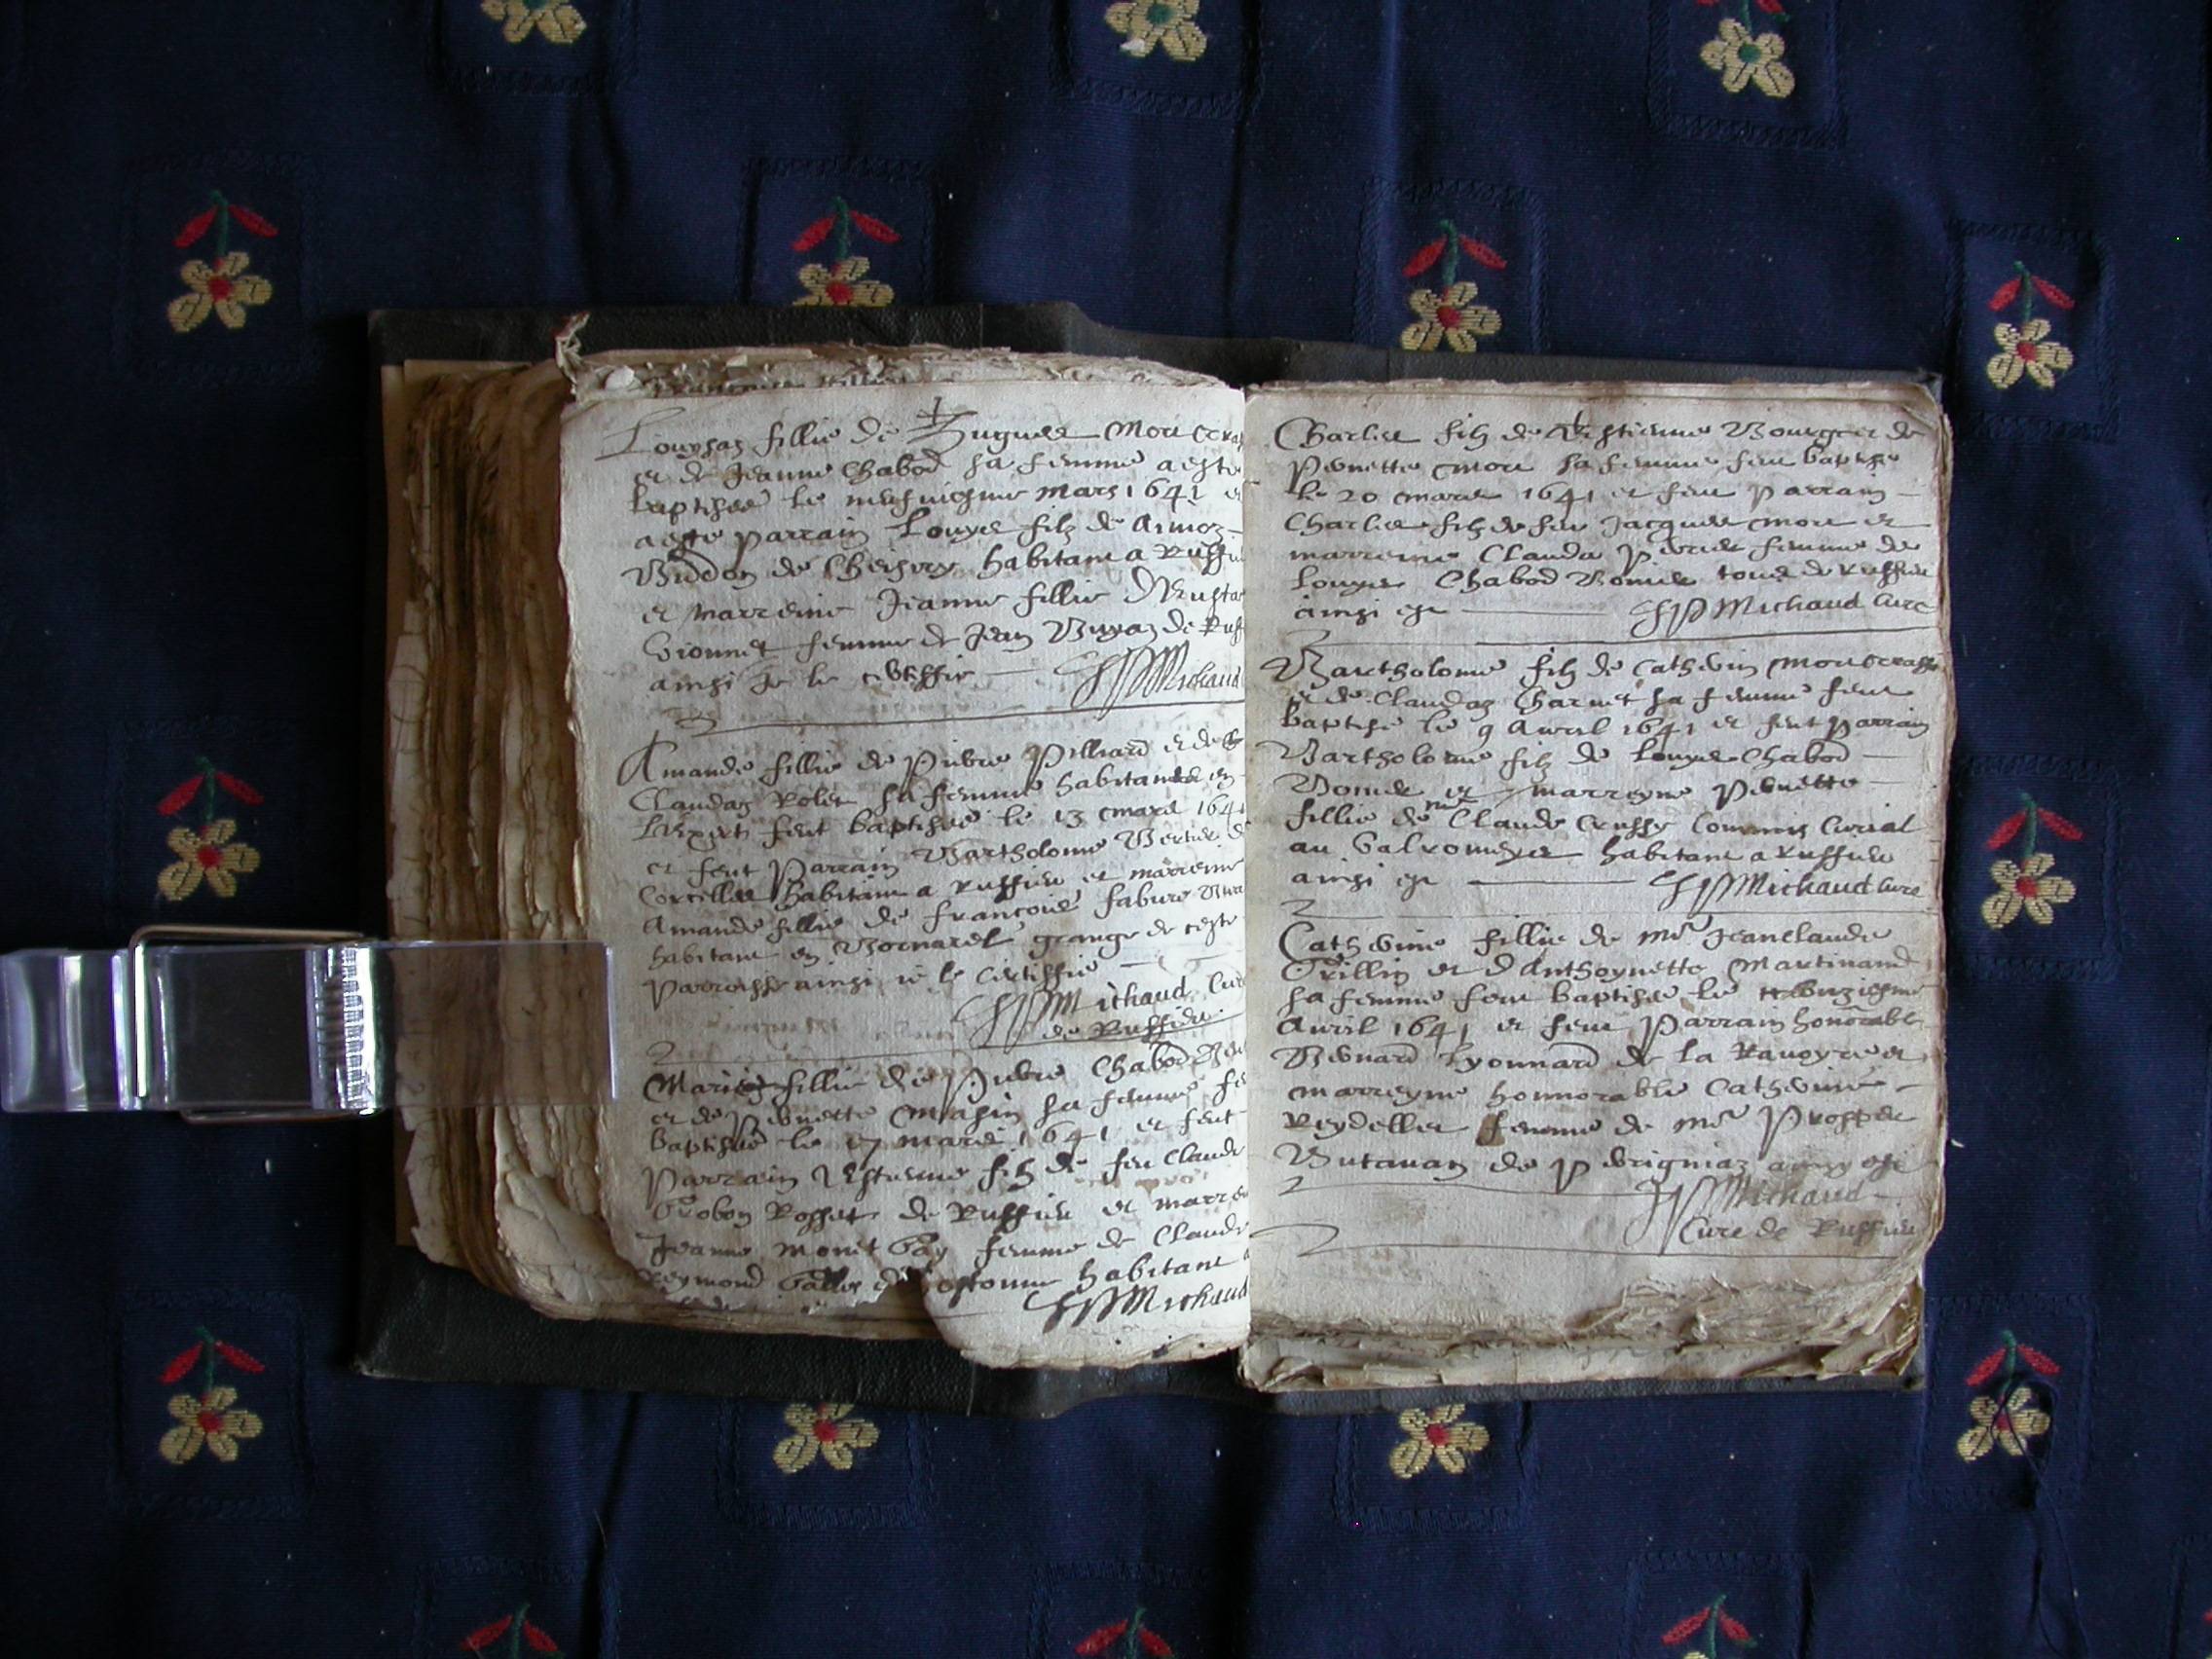 Louysaz fillie de Hugues More
et de Jeanne Chabod sa femme a este
baptisee le neufuiesme mars 1641 et
a este parrain Louys filz de Aimoz
Budon de habitant a Ruff
et marreine Jeanne fillie
femme de Jean de Ruff
ainsi je le certiffie Michaud
Amande fillie de Pierre Pilliard et de
Claudaz Rolet sa femme habitants en
feut baptisee le 13 mars 1641
et feut parrain Bartholome Bertier
habitant a Ruffieu et marreine
Amande fillie de Francois fabure
habitant en Bornarel grange de ceste
parroisse ainsi je le certiffie
Michaud Cure
de Ruffieu
Marie fillie de Pierre Chabod
et de Pernette sa femme
baptisee le 17 mars 1641 et feut
parrain Estienne filz de feu Claude
Grobon Rosset de Ruffieu et marre
Jeanne femme de Claude
habitant
Michaud
Charles filz de Estienne Bourgeis de
Pernette More sa femme feut baptise
le 20 mars 1641 et feut parrain
Charles filz de feu Jacques More et
marreine Clauda Perrier femme de
Louys Chabod tous de Ruffieu
ainsi est Michaud Cure
Bartholome filz de Cathelin More
et de Claudaz Charvet sa femme feut
baptise le 9 Avril 1641 et feut parrain
Bartholome filz de Louys Chabod
et marreyne Pernette
fillie de me Claude Crussy commis curial
au Valromeys habitant a Ruffieu
ainsi est Michaud Cure
Catherine fillie de me Jeanclaude
Trillin et d Anthoynette Martinand
sa femme feut baptisee le unziesme
Avril 1641 et feut parrain honorable
Bernard Lyonnard de la Ravoyre et
marreyne honnorable Catherine
Reydellet femme de me Prosper
Butavan de ainsy est
Michaud
Cure de Ruffieu